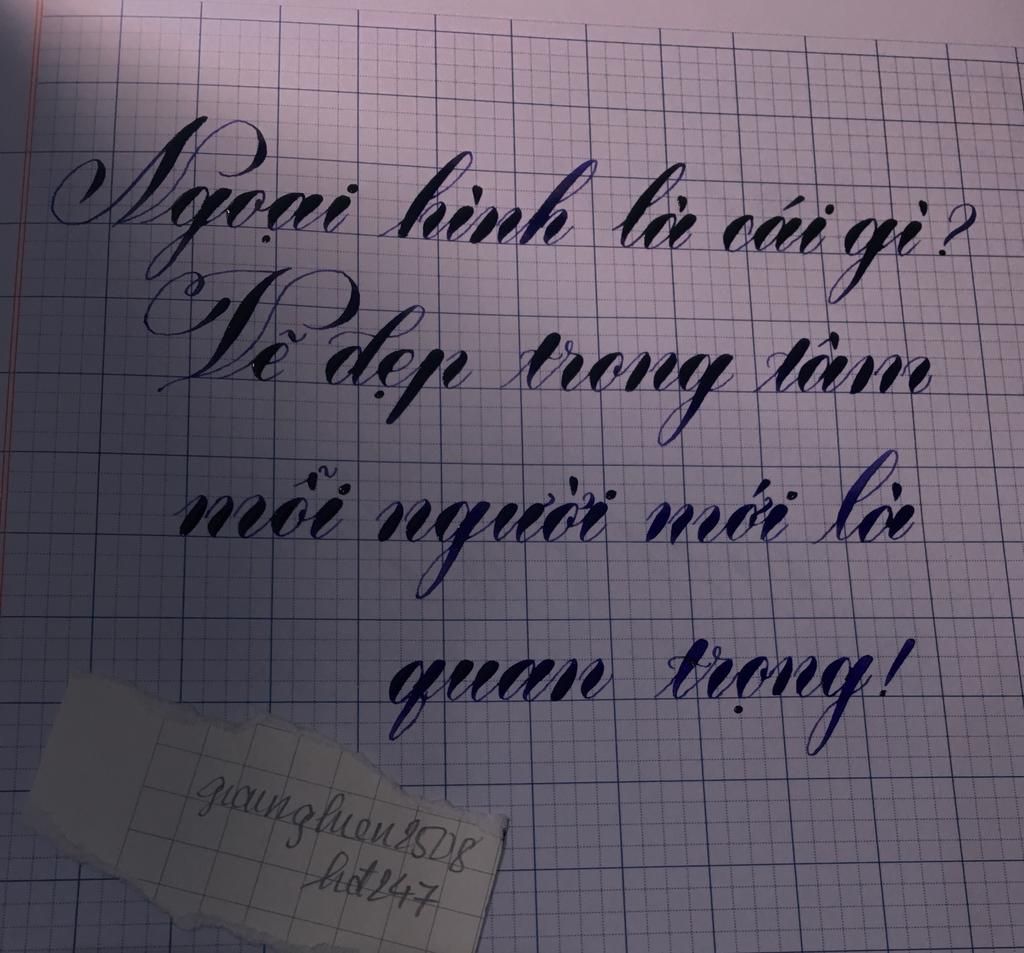 Ngoại hình là cái gì?
Vẽ đẹp trong tâm
mỗi người mới là
quan trọng!
gianghuon2508
hd247